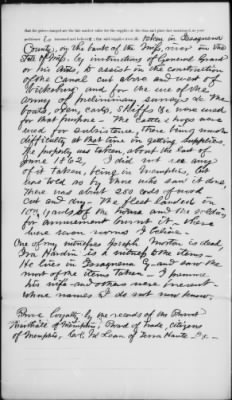 that the prices charged are the fair market value for the supplies at the time and place they were taken, as your
petitioner is informed and believes; that said supplies were taken in Issaquena
County, on the bank of the Miss. river in the
State of Miss. by instructions of General Grant
or his to assist in the construction
of the Canal cut above and west of
Vicksburg and for the use of the
army of preliminary surveys &c The
boats, oxen, carts, Skiffs &c were used
for that purpose - The Cattle & hogs were
used for subsistence, there being much
difficulty at that time in getting supplies
The property was taken, about the last of
June 1862, I did not see any
of it taken, being in Memphis, but
was told so by those who saw it done
There was about 200 cords of wood
cut and dry - The fleet landed in
100 yards of the house and the soldiers
for amusement burnt it - there
were seven rooms I believe.
One of my witnesses Joseph Morton is dead,
Ira Hardin is a witness to the items -
He lives in Issaquena Co - and saw the
most of the items taken - I presume
his wife and others were present -
whose names I do not now know.
Prove loyalty by the records of the Provost
Marshall of Memphis, Board of Trade, citizens
of Memphis, Col. McLean of Terra Haute